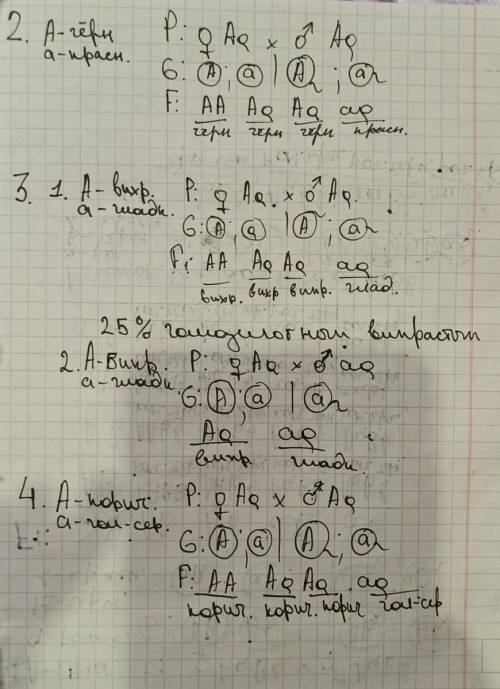 2. А-чёрн P: ♀ Aa × ♂ Aa
а-красн.
G: A ; a | A ; a
F: AA Aa Aa aa
черн черн черн красн.
3. 1. А-вихр. P: ♀ Aa × ♂ Aa.
а-гладк.
G: A ; a | A ; a
F: AA Aa Aa aa
вихр. вихр вихр. глад.
25% гомозигот ный вихрастый
2. А-Вихр. P: ♀ Aa × ♂ aa
а-гладк
G: A ; a | a
Aa aa
вихр гладк
4. А-корич. P: ♀ Aa × ♂ Aa
а-гол-сер.
G: A ; a | A ; a
F: AA Aa Aa aa
корич. корич. корич гол-сер